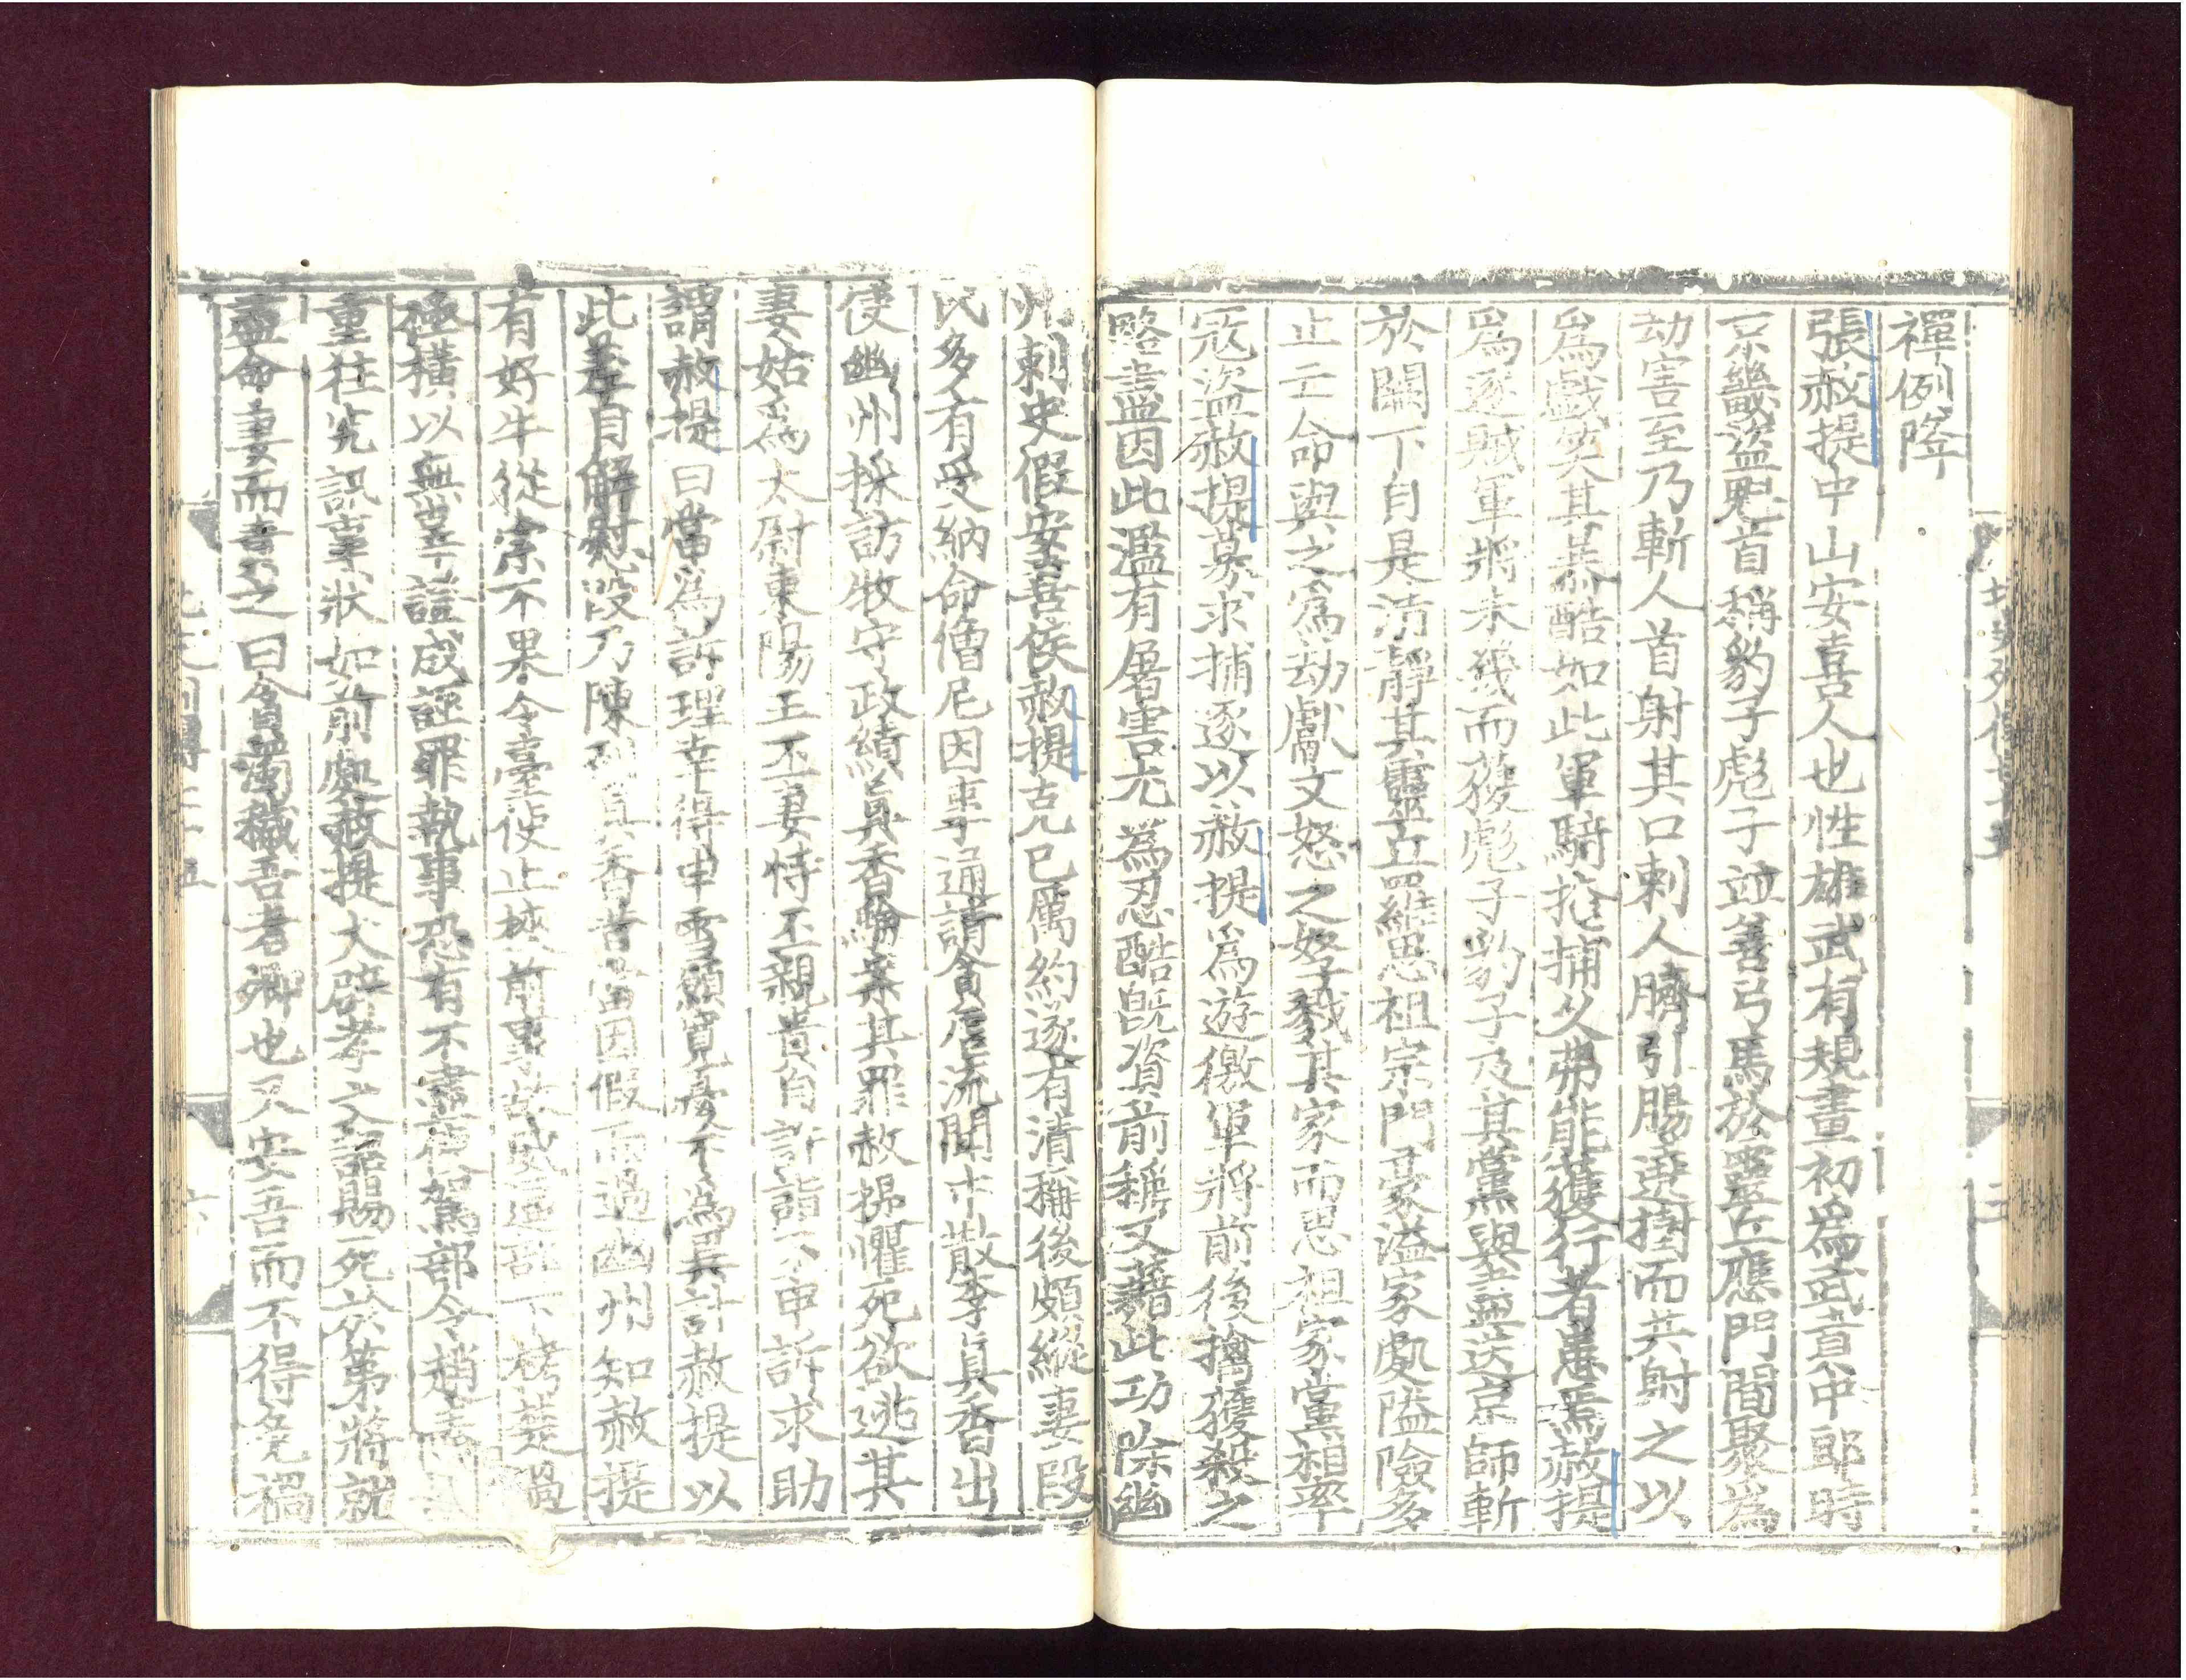 禪例降
張赦提中山安喜人也性雄武有規畫初爲武賁中郎時
京畿盜魁首稱豹子彪子並善弓馬於靈丘應門閒聚爲
劫害至乃斬人首射其口刺人臍引腸遶樹而共射之以
爲戲笑其暴酷如此軍騎掩捕久弗能獲行者患焉赦提
爲逐賊軍將未幾而獲彪子豹子及其黨與盡送京師斬
於闕下自是清靜其靈丘羅思祖宗門豪溢家處隘險多
止亡命與之爲劫獻文怒之孥戮其家而思祖家黨相率
寇盜赦提募求捕逐以赦提爲遊徼軍將前後擒獲殺之
略盡因此濫有屠害尤爲忍酷旣資前稱又藉此功除幽
州刺史假安喜侯赦提克己厲約遂有清稱後頗縱妻段
氏多有受納命僧尼因事通請貪虐流聞中散李眞香出
使幽州採訪牧守政績眞香驗案其罪赦提懼死欲逃其
妻姑爲太尉東陽王丕妻恃丕親貴自許詣丕申訴求助
謂赦提曰當爲訴理幸得申雪願寬憂不爲異計赦提以
此差自解慰段乃陳列眞香昔嘗因假而過幽州知赦提
有好牛從索不果今臺使止挾前事故威逼部下拷楚過
極橫以無辜證成誣罪執事恐有不盡使駕部令趙
重往究訊事狀如前處赦提大辟孝文詔賜死於第將就
盡命妻而責之曰貪濁穢吾者卿也又安吾而不得免禍